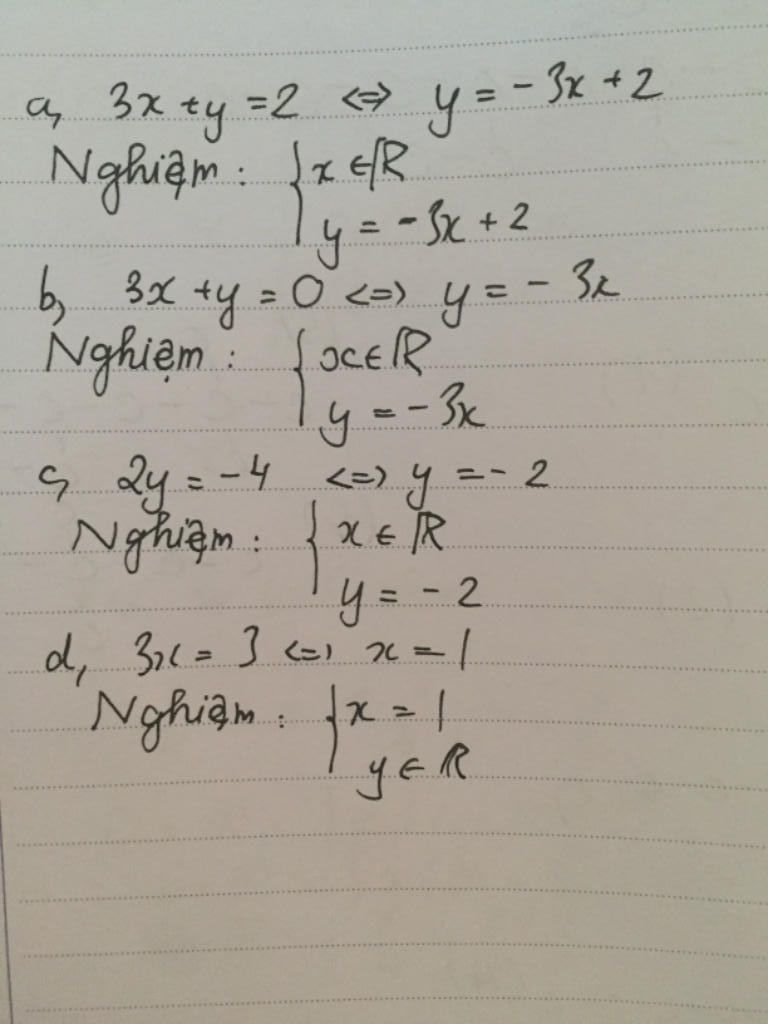 a, 3x + y = 2 <=> y = - 3x + 2
Nghiệm : { x ∈ ℝ
y = - 3x + 2
b, 3x + y = 0 <=> y = - 3x
Nghiệm : { x ∈ ℝ
y = - 3x
c, 2y = - 4 <=> y = - 2
Nghiệm : { x ∈ ℝ
y = - 2
d, 3x = 3 <=> x = 1
Nghiệm : { x = 1
y ∈ ℝ